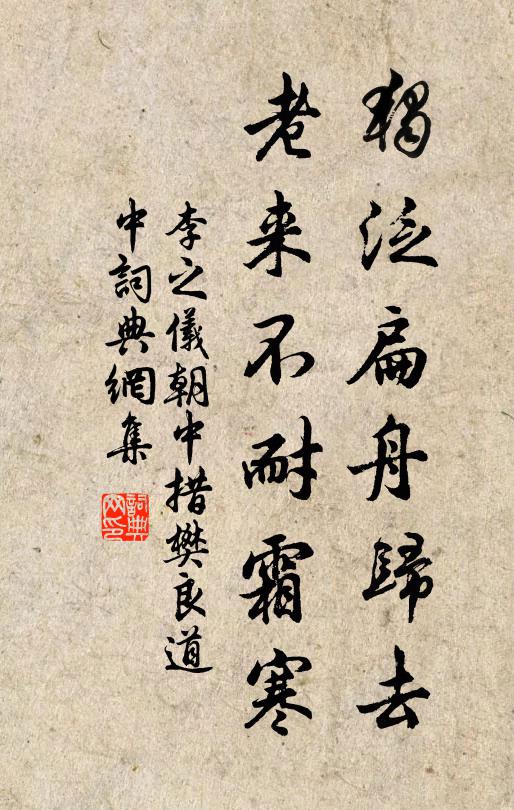 獨泛扁舟歸去
老来不耐霜寒
李之儀朝中措樊良道
中詞典網集
詞典网印